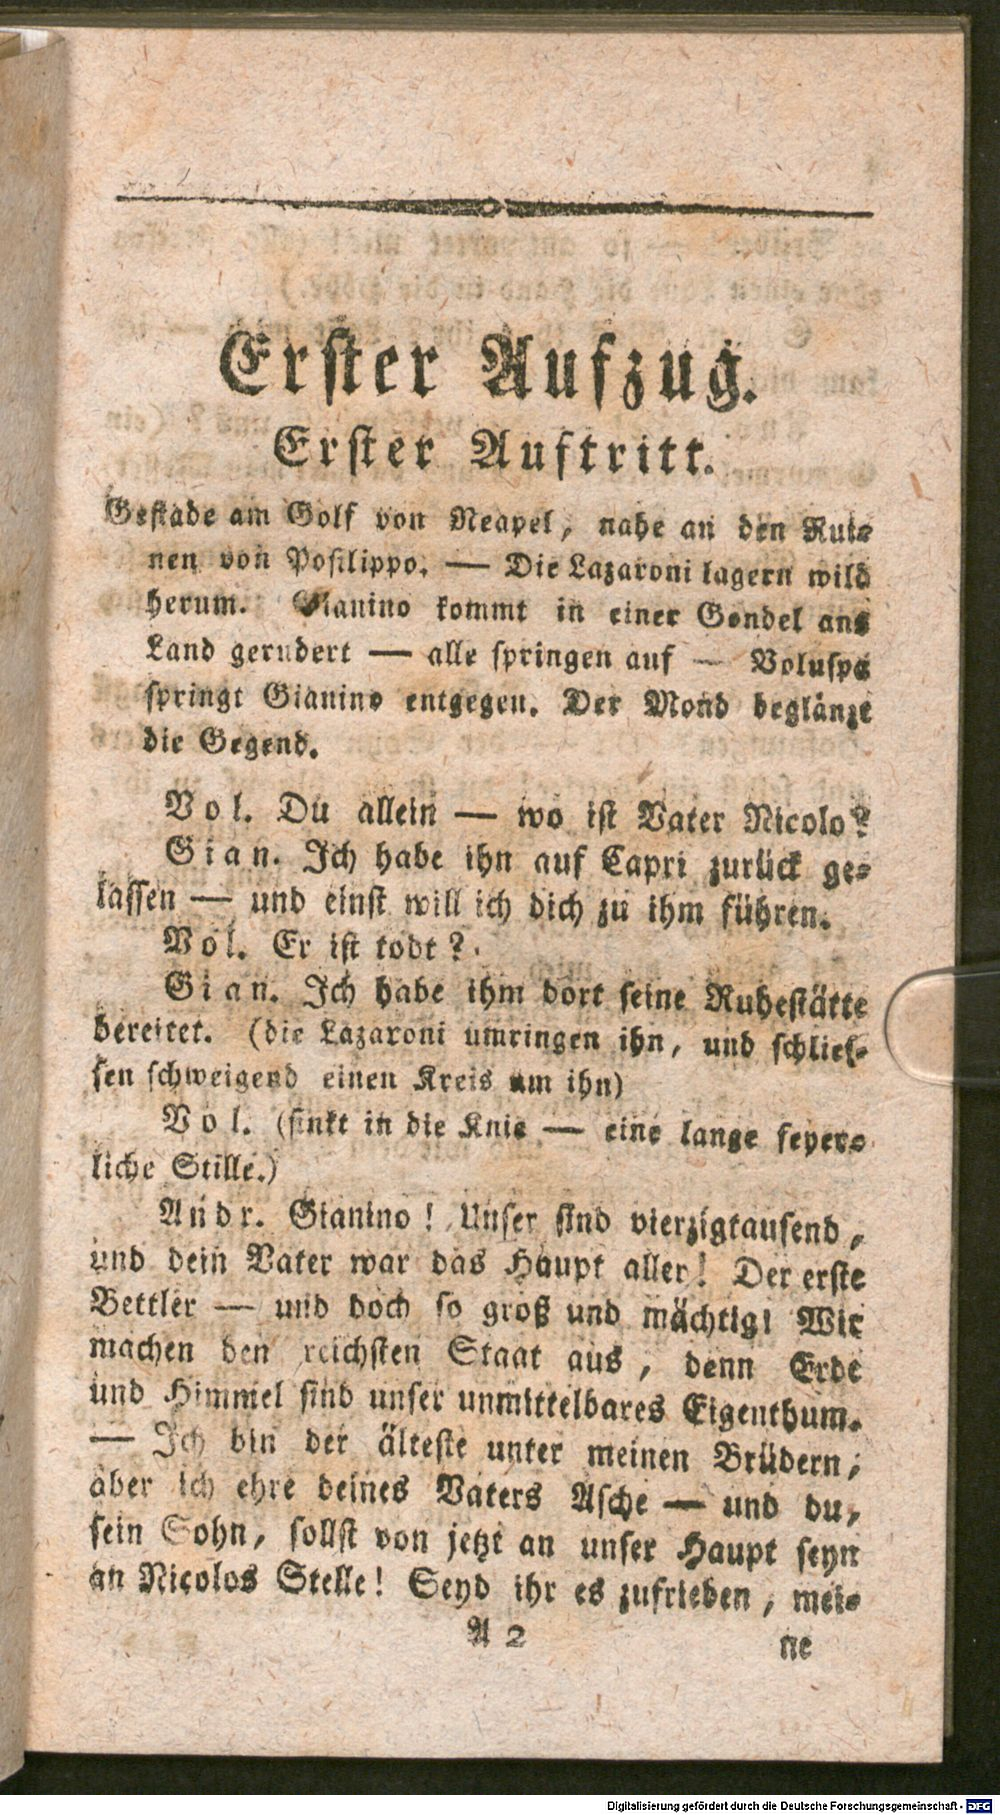 Erster Aufzug.
Erster Auftritt.
Gestade am Golf von Neapel, nahe an den Rui⸗
nen von Posilippo. — Die Lazaroni lagern wild
herum. Gianino kommt in einer Gondel ans
Land gerudert — alle springen auf — Voluspa
springt Gianino entgegen. Der Mond beglänzt
die Gegend.
Vol. Du allein — wo ist Vater Nicolo?
Gian. Ich habe ihn auf Capri zurück ge⸗
lassen — und einst will ich dich zu ihm führen.
Vol. Er ist todt?
Gian. Ich habe ihm dort seine Ruhestätte
bereitet. (die Lazaroni umringen ihn, und schlies⸗
sen schweigend einen Kreis um ihn)
Vol. (sinkt in die Knie — eine lange feyer⸗
liche Stille.)
Andr. Gianino! Unser sind vierzigtausend,
und dein Vater war das Haupt aller! Der erste
Bettler — und doch so groß und mächtig! Wir
machen den reichsten Staat aus, denn Erde
und Himmel sind unser unmittelbares Eigenthum.
— Ich bin der älteste unter meinen Brüdern,
aber ich ehre deines Vaters Asche — und du,
sein Sohn, sollst von jetzt an unser Haupt seyn
an Nicolos Stelle! Seyd ihr es zufrieden, mei⸗
A 2
ne
Digitalisierung gefördert durch die Deutsche Forschungsgemeinschaft - DFG